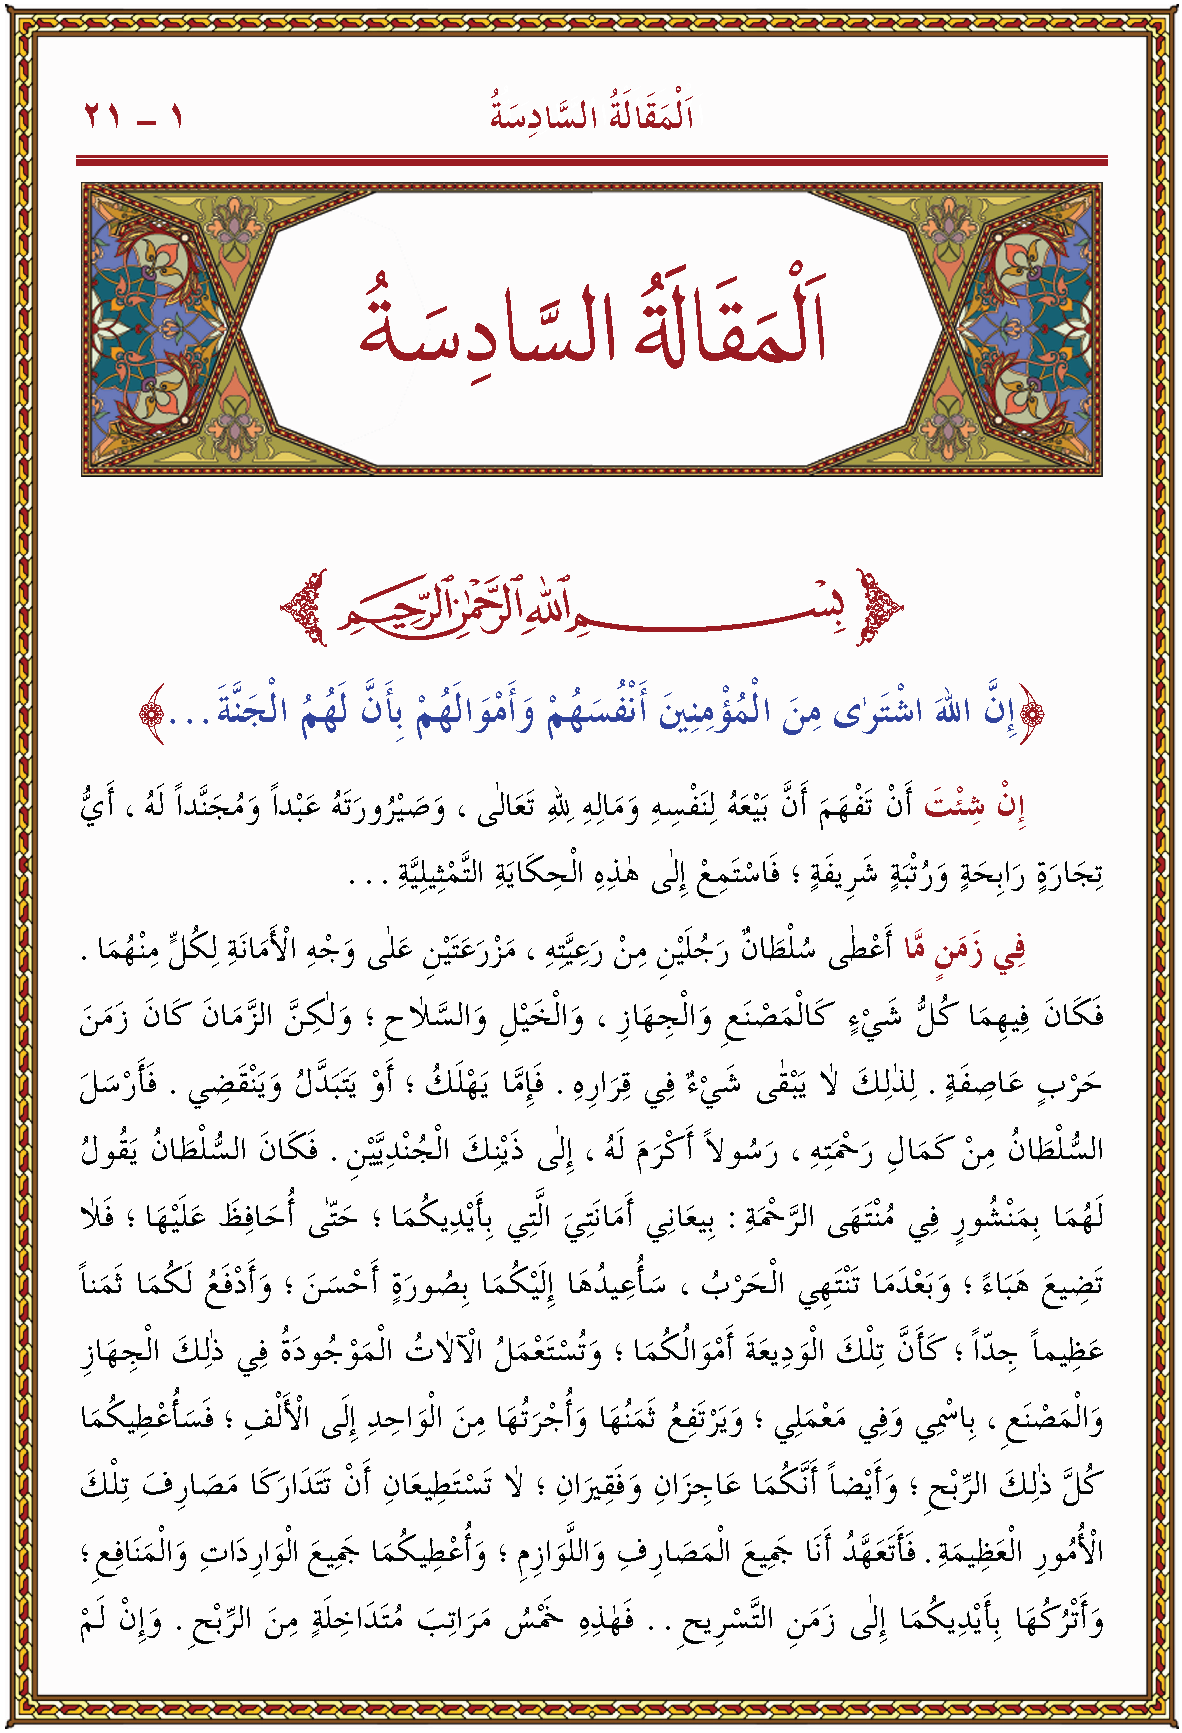 اَلْمَقَالَةُ السَّادِسَةُ ١ – ٢١
اَلْمَقَالَةُ السَّادِسَةُ
بِسْمِ اللهِ الرَّحْمٰنِ الرَّحِيمِ
﴿إِنَّ اللهَ اشْتَرٰى مِنَ الْمُؤْمِنِينَ أَنْفُسَهُمْ وَأَمْوَالَهُمْ بِأَنَّ لَهُمُ الْجَنَّةَ . . .﴾
إِنْ شِئْتَ أَنْ تَفْهَمَ أَنَّ بَيْعَهُ لِنَفْسِهِ وَمَالِهِ لِلهِ تَعَالٰى ، وَصَيْرُورَتَهُ عَبْداً وَمُجَنَّداً لَهُ ، أَيُّ
تِجَارَةٍ رَابِحَةٍ وَرُتْبَةٍ شَرِيفَةٍ ؛ فَاسْتَمِعْ إِلٰى هٰذِهِ الْحِكَايَةِ التَّمْثِيلِيَّةِ . . .
فِي زَمَنٍ مَّا أَعْطٰى سُلْطَانٌ رَجُلَيْنِ مِنْ رَعِيَّتِهِ ، مَزْرَعَتَيْنِ عَلٰى وَجْهِ الْأَمَانَةِ لِكُلٍّ مِنْهُمَا .
فَكَانَ فِيهِمَا كُلُّ شَيْءٍ كَالْمَصْنَعِ وَالْجِهَازِ ، وَالْخَيْلِ وَالسَّلَاحِ ؛ وَلٰكِنَّ الزَّمَانَ كَانَ زَمَنَ
حَرْبٍ عَاصِفَةٍ . لِذٰلِكَ لَا يَبْقٰى شَيْءٌ فِي قِرَارِهِ . فَإِمَّا يَهْلَكُ ؛ أَوْ يَتَبَدَّلُ وَيَنْقَضِي . فَأَرْسَلَ
السُّلْطَانُ مِنْ كَمَالِ رَحْمَتِهِ ، رَسُولاً أَكْرَمَ لَهُ ، إِلٰى ذَيْنِكَ الْجُنْدِيَّيْنِ . فَكَانَ السُّلْطَانُ يَقُولُ
لَهُمَا بِمَنْشُورٍ فِي مُنْتَهَى الرَّحْمَةِ : بِيعَانِي أَمَانَتِيَ الَّتِي بِأَيْدِيكُمَا ؛ حَتّٰى أُحَافِظَ عَلَيْهَا ؛ فَلَا
تَضِيعَ هَبَاءً ؛ وَبَعْدَمَا تَنْتَهِي الْحَرْبُ ، سَأُعِيدُهَا إِلَيْكُمَا بِصُورَةٍ أَحْسَنَ ؛ وَأَدْفَعُ لَكُمَا ثَمَناً
عَظِيماً جِدّاً ؛ كَأَنَّ تِلْكَ الْوَدِيعَةَ أَمْوَالُكُمَا ؛ وَتُسْتَعْمَلُ الْآلَاتُ الْمَوْجُودَةُ فِي ذٰلِكَ الْجِهَازِ
وَالْمَصْنَعِ ، بِاسْمِي وَفِي مَعْمَلِي ؛ وَيَرْتَفِعُ ثَمَنُهَا وَأُجْرَتُهَا مِنَ الْوَاحِدِ إِلَى الْأَلْفِ ؛ فَسَأُعْطِيكُمَا
كُلَّ ذٰلِكَ الرِّبْحِ ؛ وَأَيْضاً أَنَّكُمَا عَاجِزَانِ وَفَقِيرَانِ ؛ لَا تَسْتَطِيعَانِ أَنْ تَتَدَارَكَا مَصَارِفَ تِلْكَ
الْأُمُورِ الْعَظِيمَةِ . فَأَتَعَهَّدُ أَنَا جَمِيعَ الْمَصَارِفِ وَاللَّوَازِمِ ؛ وَأُعْطِيكُمَا جَمِيعَ الْوَارِدَاتِ وَالْمَنَافِعِ ؛
وَأَتْرُكُهَا بِأَيْدِيكُمَا إِلٰى زَمَنِ التَّسْرِيحِ . . فَهٰذِهِ خَمْسُ مَرَاتِبَ مُتَدَاخِلَةٍ مِنَ الرِّبْحِ . وَإِنْ لَمْ